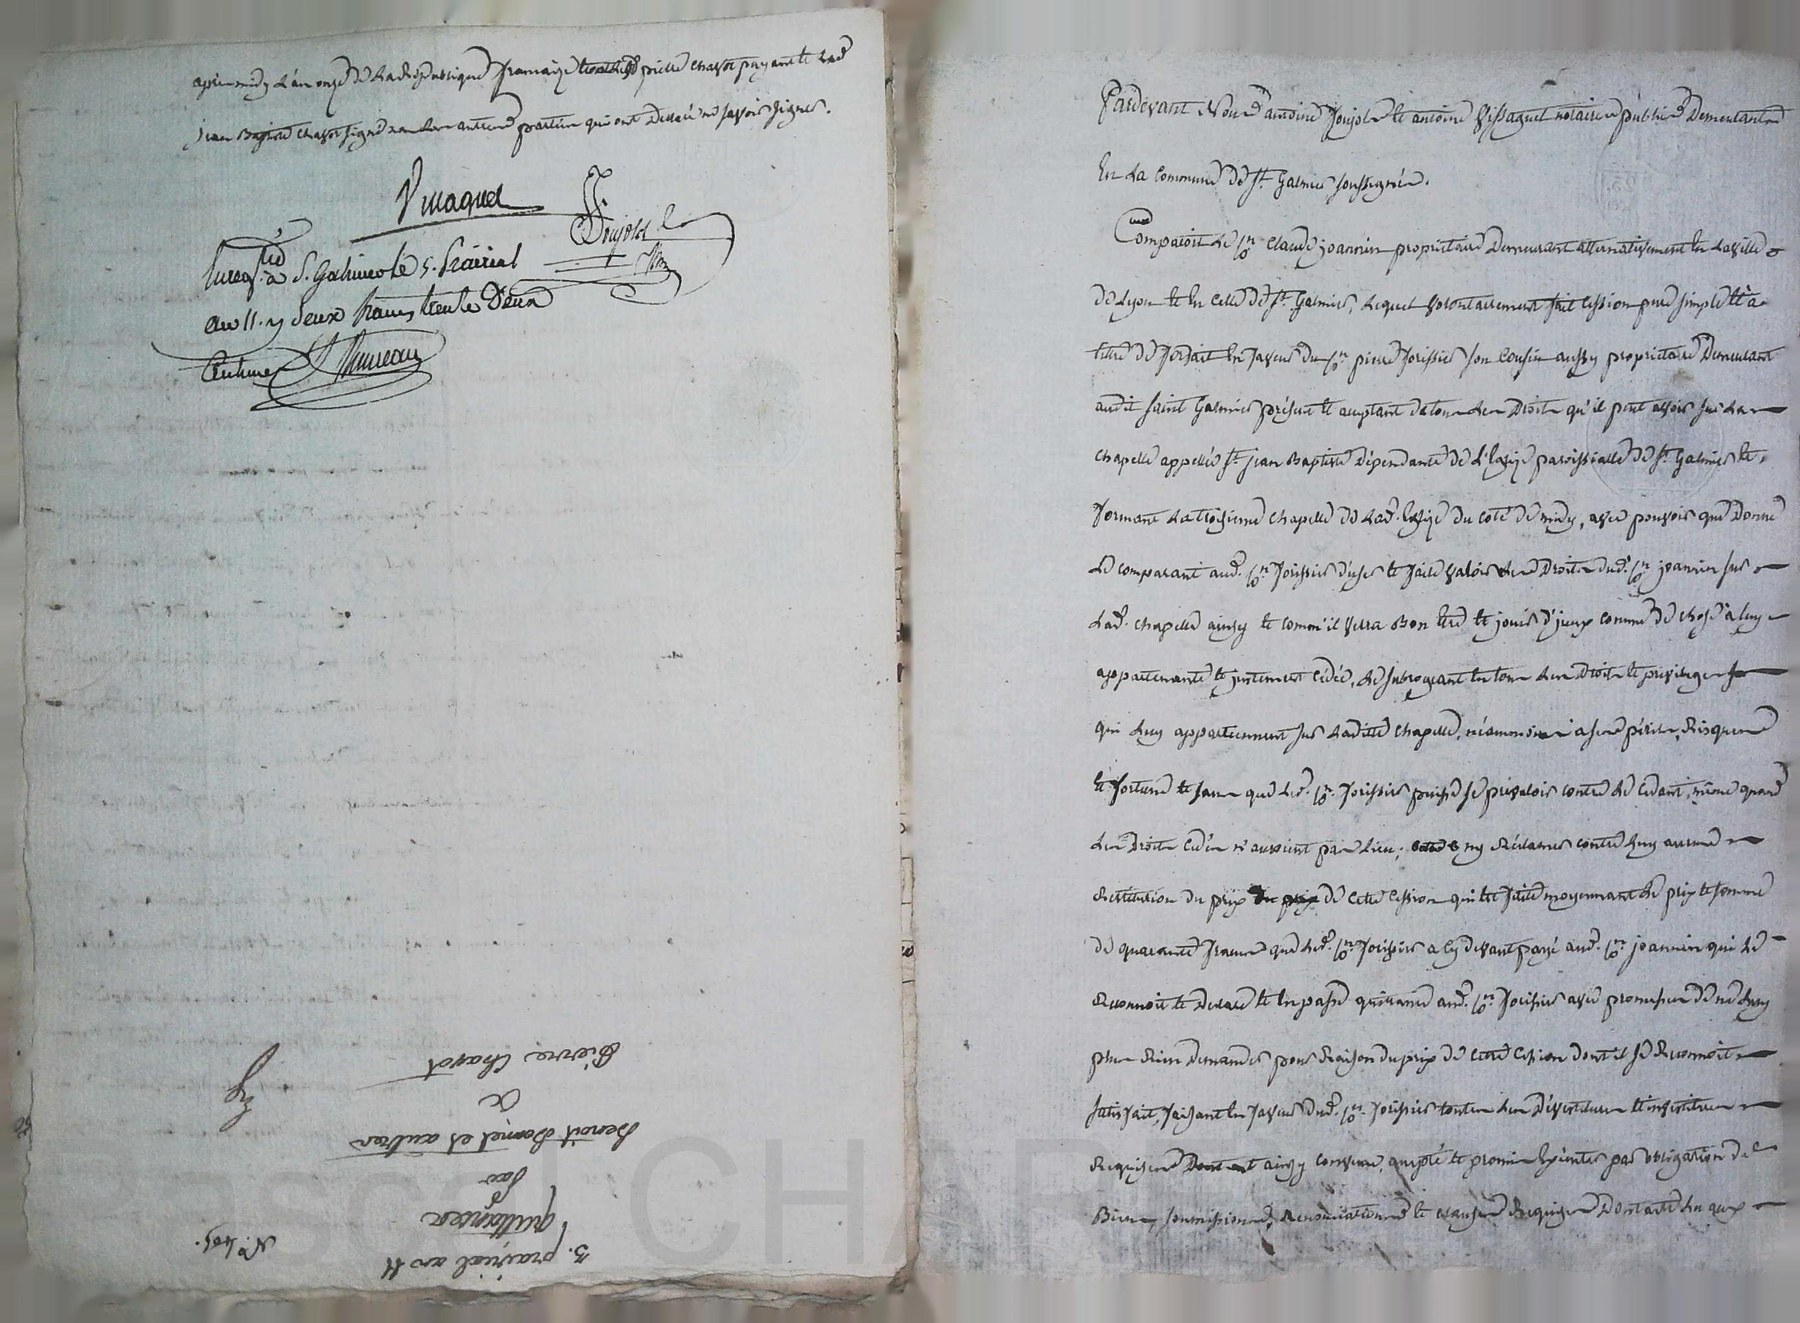 après midy L'an onze de La République française led. pierre chavot payant et led.
jean Baptiste chavot signé non les autres parties qui ont déclaré ne savoir signer.
Vissaguet
Poujolat
Enreg.tré à S. Galmier le 5. Prairial
an 11. r deux francs trente Deux
Centimes
Pierre chavot
a
Benoit et autres
par
quittances
3. prairial an 11
N.o 405.
Pardevant Nous antoine Poujolat et antoine Vissaguet notaires publics Demeurants
En La Commune de St. Galmier soussignés.
Comparoit Le Sr. Claude joannin propriétaire Demeurant alternativement En La ville
de Lyon et En Celle de St. Galmier, Lequel volontairement fait Cession pure simple et à
titre de forfait En faveur du Sr. pierre forissier son Cousin aussy propriétaire Demeurant
audit Saint Galmier présent et acceptant de tous Les Droits qu'il peut avoir sur La
chapelle appellée St. jean Baptiste Dépendante de L'Eglise paroissialle de St. Galmier et
formant La troisieme chapelle de Lad. Eglise du coté de midy, avec pouvoir que Donne
Le comparant aud. Sr. forissier d'user et faire valoir Les Droits dud. Sr. joannin sur
Lad. chapelle ainsy et comm'il verra Bon Etre et jouir d'yceux comme de chose à Luy
appartenante et justement Cédée, Le subrogeant En tous Les Droits et privileges
qui Luy appartiennent sur Laditte chapelle, néanmoins à ses périls, Risques
et fortune et sans que Led. Sr. forissier puisse se prévaloir contre Le Cédant, même quand
Les Droits Cédés n'auroient pas Lieu, ny Réclamer contre Luy aucune
Restitution du prix de cette Cession qui Est faite moyennant Le prix et somme
de quarante francs que Led. Sr. forissier a Cy devant payé aud. Sr. joannin qui Le
Reconnoit et Déclare et En passe quittance aud. Sr. forissier avec promesse de ne Luy
plus Rien Demander pour Raison du prix de Cette Cession dont il se Reconnoit
satisfait, faisant En faveur dud. Sr. forissier toutes Les Dévestitures et investitures
Requises ainsy convenu, accepté et promis Exécuter par obligation de
Biens, soumissions, Renonciations et clauses Requises Dont acte Lu aux